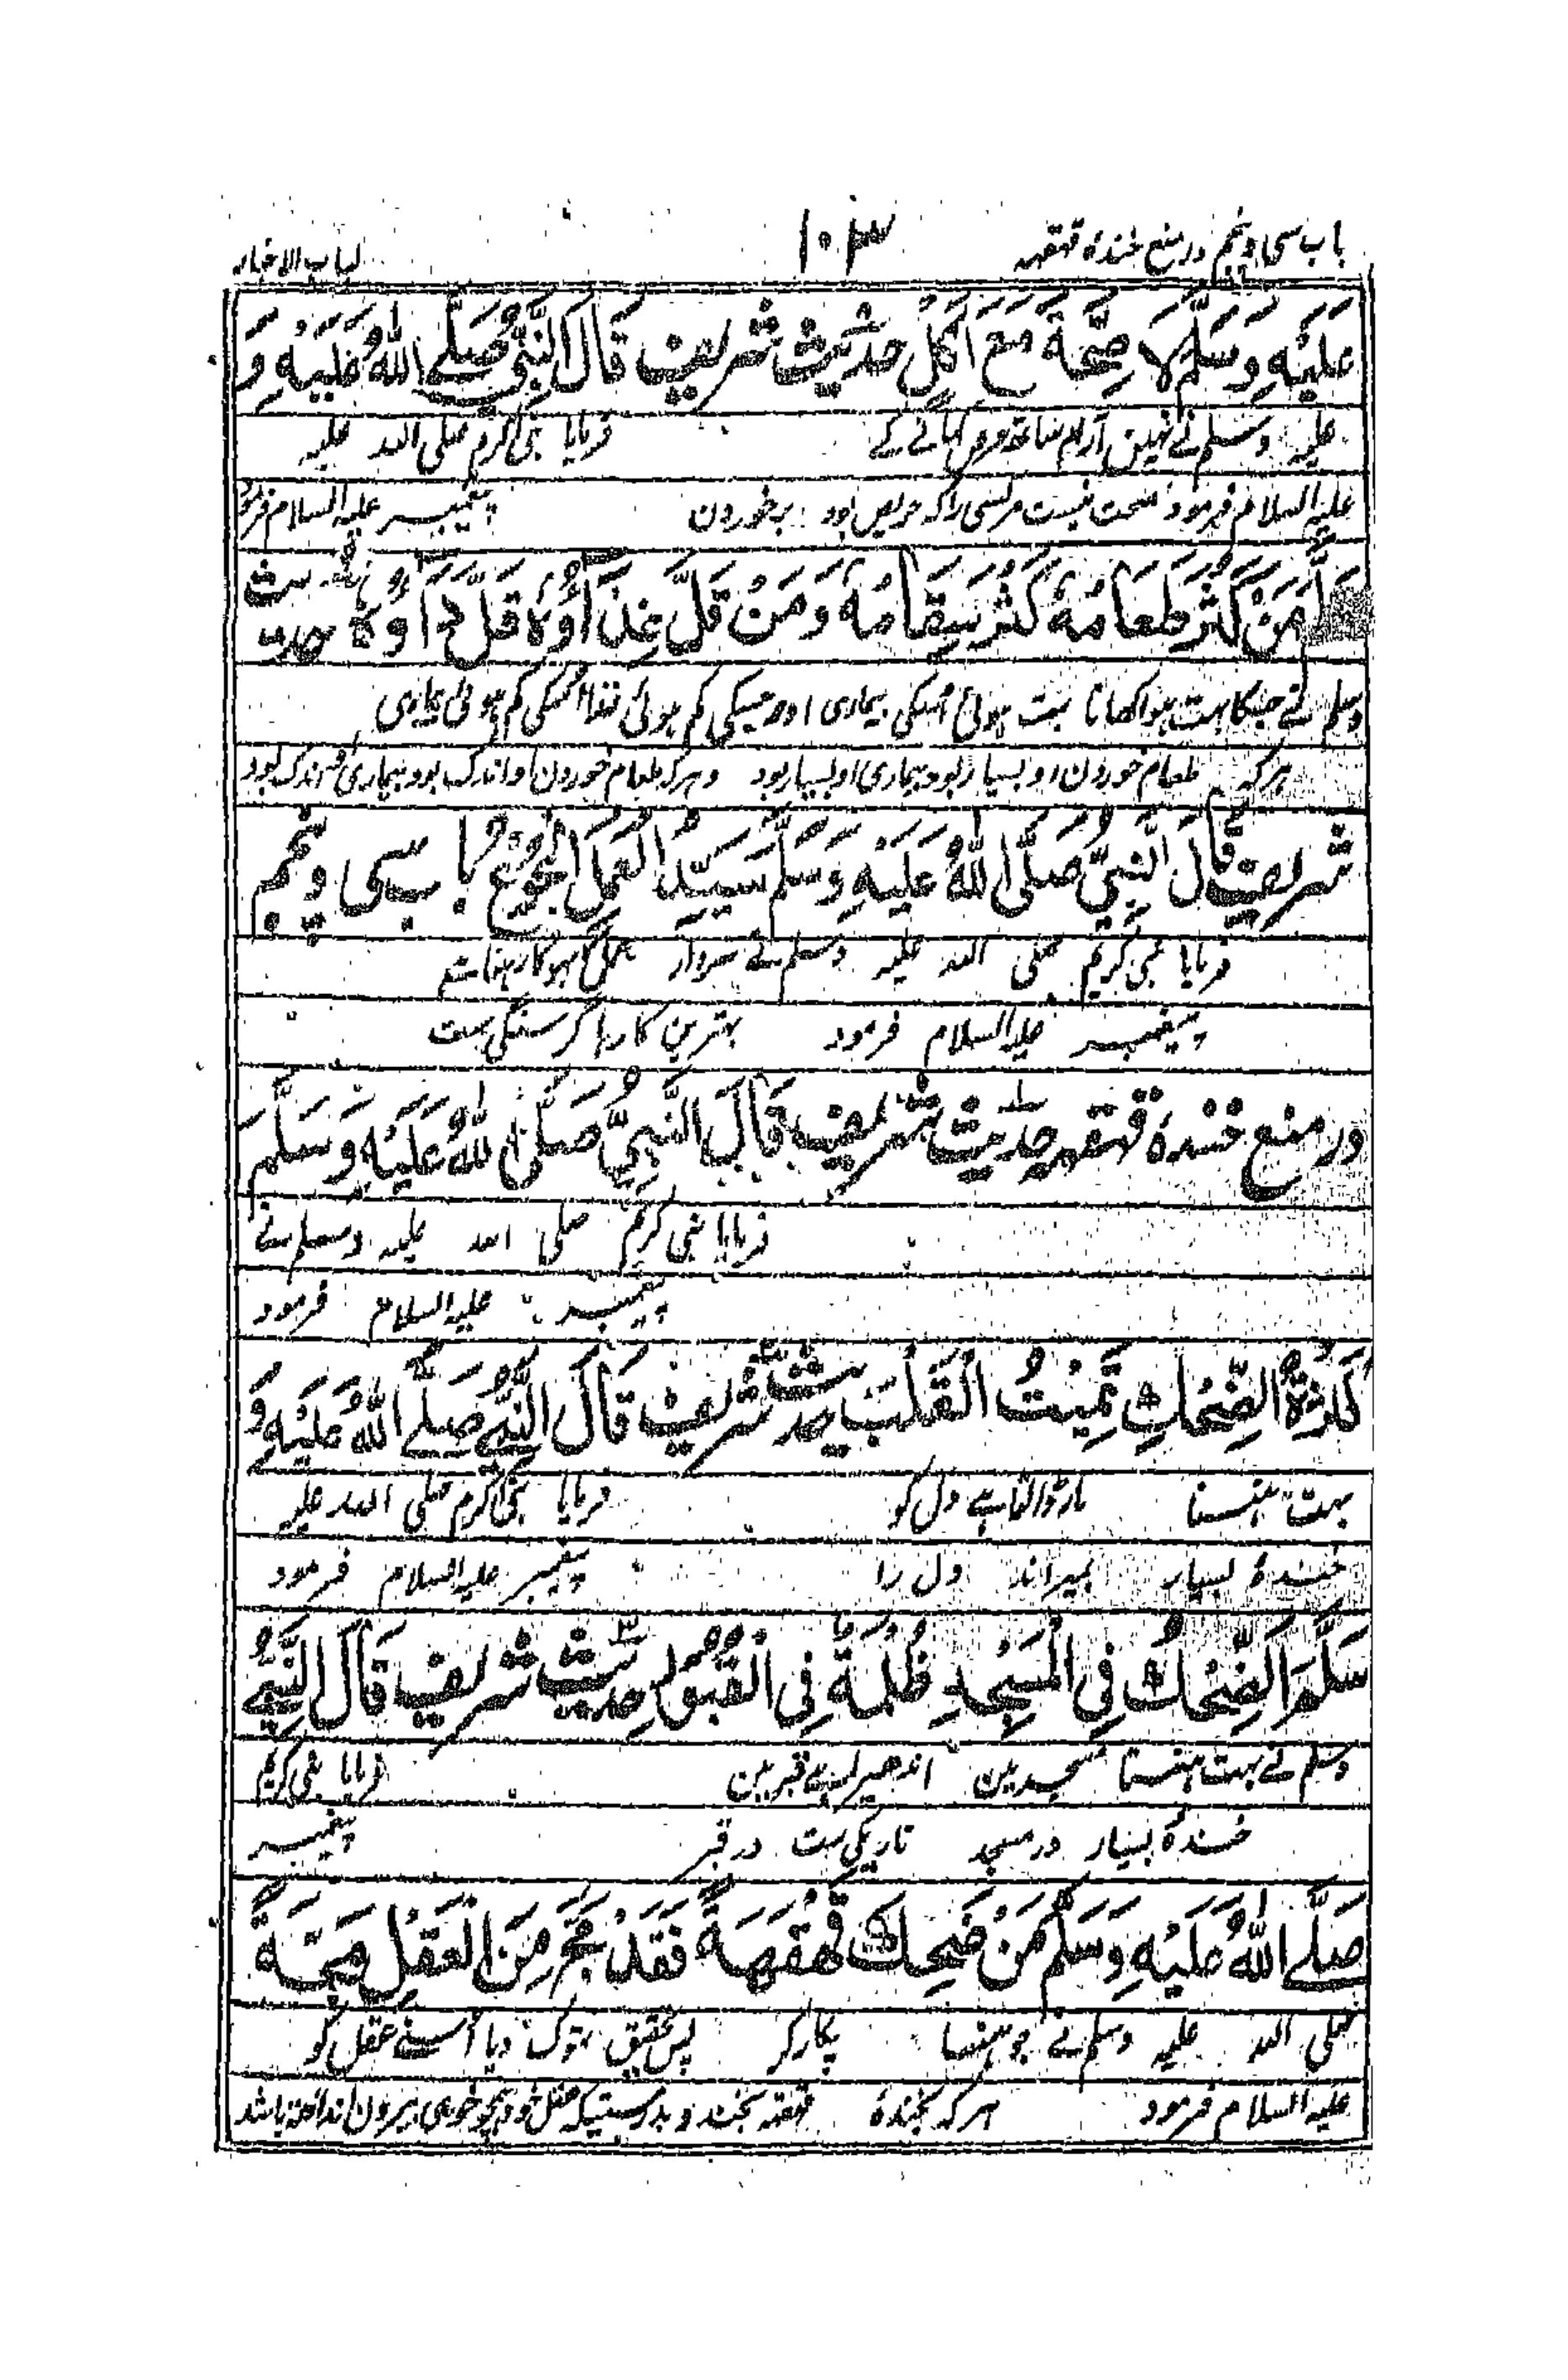 باب سی و پنجم در منع خندهٔ قهقهہ ۱۰۳ لباب الاخبار
عَلَيْهِ وَسَلَّمَ لَا صِحَّةَ مَعَ أَكْلٍ حدیث شریف قَالَ النَّبِيُّ صَلَّى اللهُ عَلَيْهِ وَ
علیہ وسلم نے نہین آرام ساتھ کہانے کے فرمایا نبی کریم صلی اللہ علیہ
علیہ السلام فرمود صحت نیست مر کسی را کہ حریص بود بر خوردن پیغمبر علیہ السلام فرمود
مَنْ كَثُرَ طَعَامُهُ كَثُرَ سِقَامُهُ وَمَنْ قَلَّ غِذَآؤُهُ قَلَّ دَآؤُهُ حدیث
وسلم نے جسکا بہت ہوا کھانا بہت ہوئی اسکی بیماری اور جسکی کم ہوئی غذا اسکی کم ہوئی بیماری
ہر کہ طعام خوردن او بسیار بود بیماری او بسیار بود و ہر کہ طعام خوردن او اندک بود بیماری او اندک بود
شریف قَالَ النَّبِيُّ صَلَّى اللهُ عَلَيْهِ وَسَلَّمَ سَيِّدُ الْعَمَلِ الْجُوْعُ باب سی و پنجم
فرمایا نبی کریم صلی اللہ علیہ وسلم نے سردار عمل کا بہوکا رہنا ہے
پیغمبر علیہ السلام فرمود بہترین کارہا گرسنگی ست
در منع خندهٔ قهقهہ حدیث شریف قَالَ النَّبِيُّ صَلَّى اللهُ عَلَيْهِ وَسَلَّمَ
فرمایا نبی کریم صلی اللہ علیہ وسلم نے
پیغمبر علیہ السلام فرمود
كَثْرَةُ الضِّحْكِ تُمِيْتُ الْقَلْبَ حدیث شریف قَالَ النَّبِيُّ صَلَّى اللهُ عَلَيْهِ وَ
بہت ہنسنا مار ڈالتا ہے دل کو فرمایا نبی کریم صلی اللہ علیہ
خندهٔ بسیار بمیراند دل را پیغمبر علیہ السلام فرمود
سَلَّمَ الضِّحْكُ فِي الْمَسْجِدِ ظُلْمَةٌ فِي الْقُبُوْرِ حدیث شریف قَالَ النَّبِيُّ
وسلم نے بہت ہنسنا مسجد مین اندھیرا ہے قبر مین فرمایا نبی کریم
خندهٔ بسیار در مسجد تاریکی ست در قبر پیغمبر
صَلَّى اللهُ عَلَيْهِ وَسَلَّمَ مَنْ ضَحِكَ قَهْقَهَةً فَقَدْ مَجَّ مِنَ الْعَقْلِ مَجَّةً
صلی اللہ علیہ وسلم نے جو ہنسا پکار کر پس تحقیق تھوک دیا اُسنے عقل کو
علیہ السلام فرمود ہر کہ بخندهٔ قهقهہ بخندد بدرستیکہ عقل خود بیرون انداختہ باشد